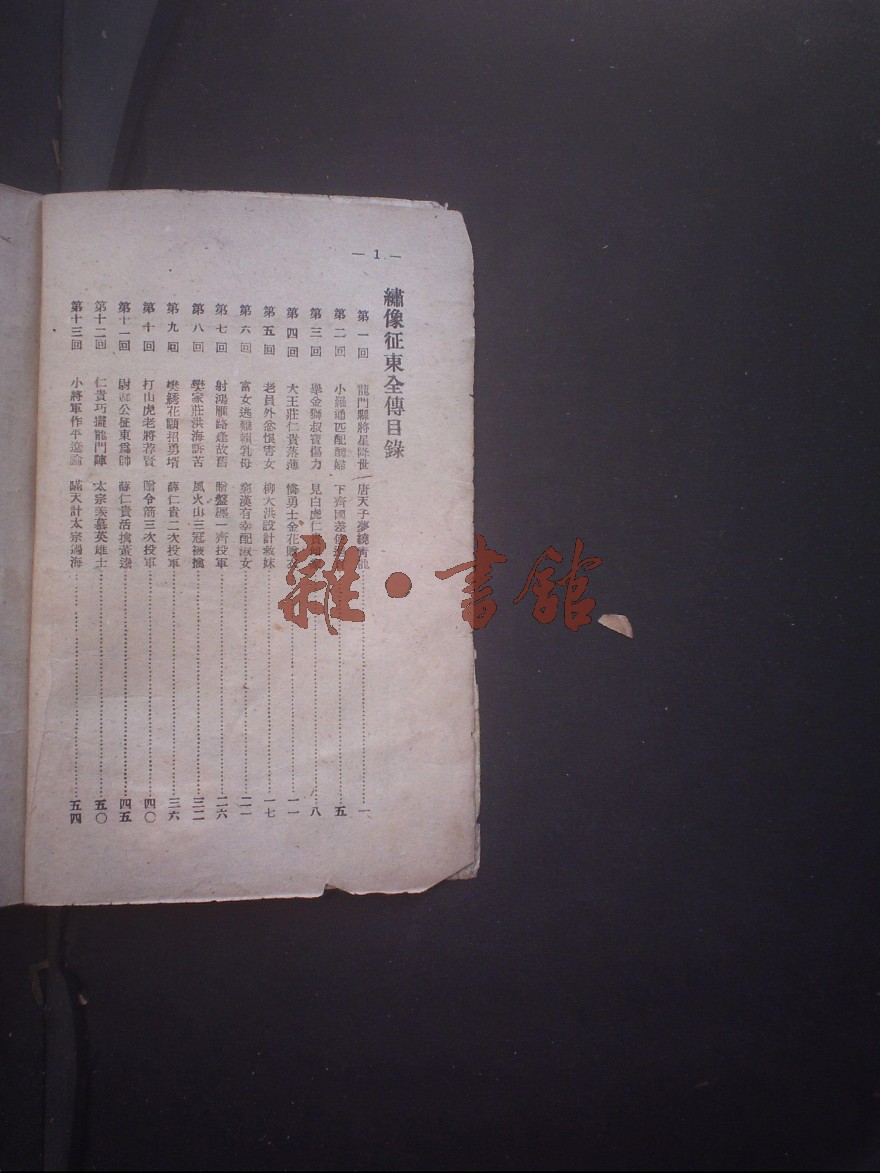 — 1 —
繡像征東全傳目錄
第一回 龍門縣將星降世 唐天子夢繞青龍 一
第二回 小羅通匹配醜婦 下齊國蓋 五
第三回 舉金獅叔寶傷力 見白虎仁貴 八
第四回 大王莊仁貴落薄 憐勇士金花贈衣 一一
第五回 老員外忿恨害女 柳大洪設計救妹 一七
第六回 富女逃難賴乳母 窮漢有幸配淑女 二一
第七回 射鴻雁路逢故舊 贈盤纏一齊投軍 二六
第八回 樊家莊洪海訴苦 風火山三冠被擒 三二
第九回 樊綉花願招勇壻 薛仁貴二次投軍 三六
第十回 打山虎老將荐賢 贈令箭三次投軍 四〇
第十一回 尉遲公征東爲帥 薛仁貴活擒董逵 四五
第十二回 仁貴巧擺龍門陣 太宗羨慕英雄士 五〇
第十三回 小將軍作平遼論 瞞天計太宗過海 五四
雜·書館